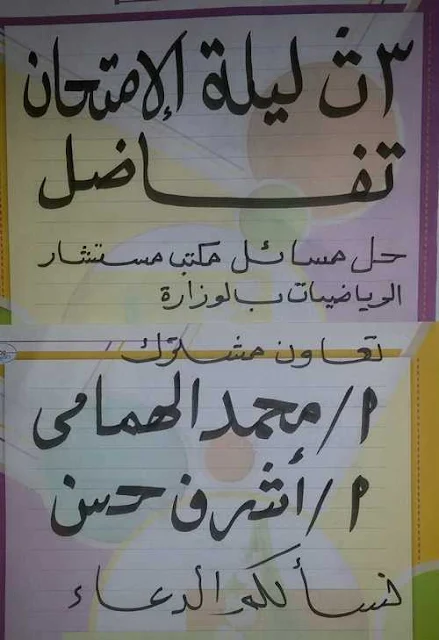 ٣ ث ليلة الإمتحان
تفاضل
حل مسائل مكتب مستشار
الرياضيات بالوزارة
تعاون مشترك
ا/ محمد الهمامى
ا/ أشرف حسن
نسألكم الدعاء